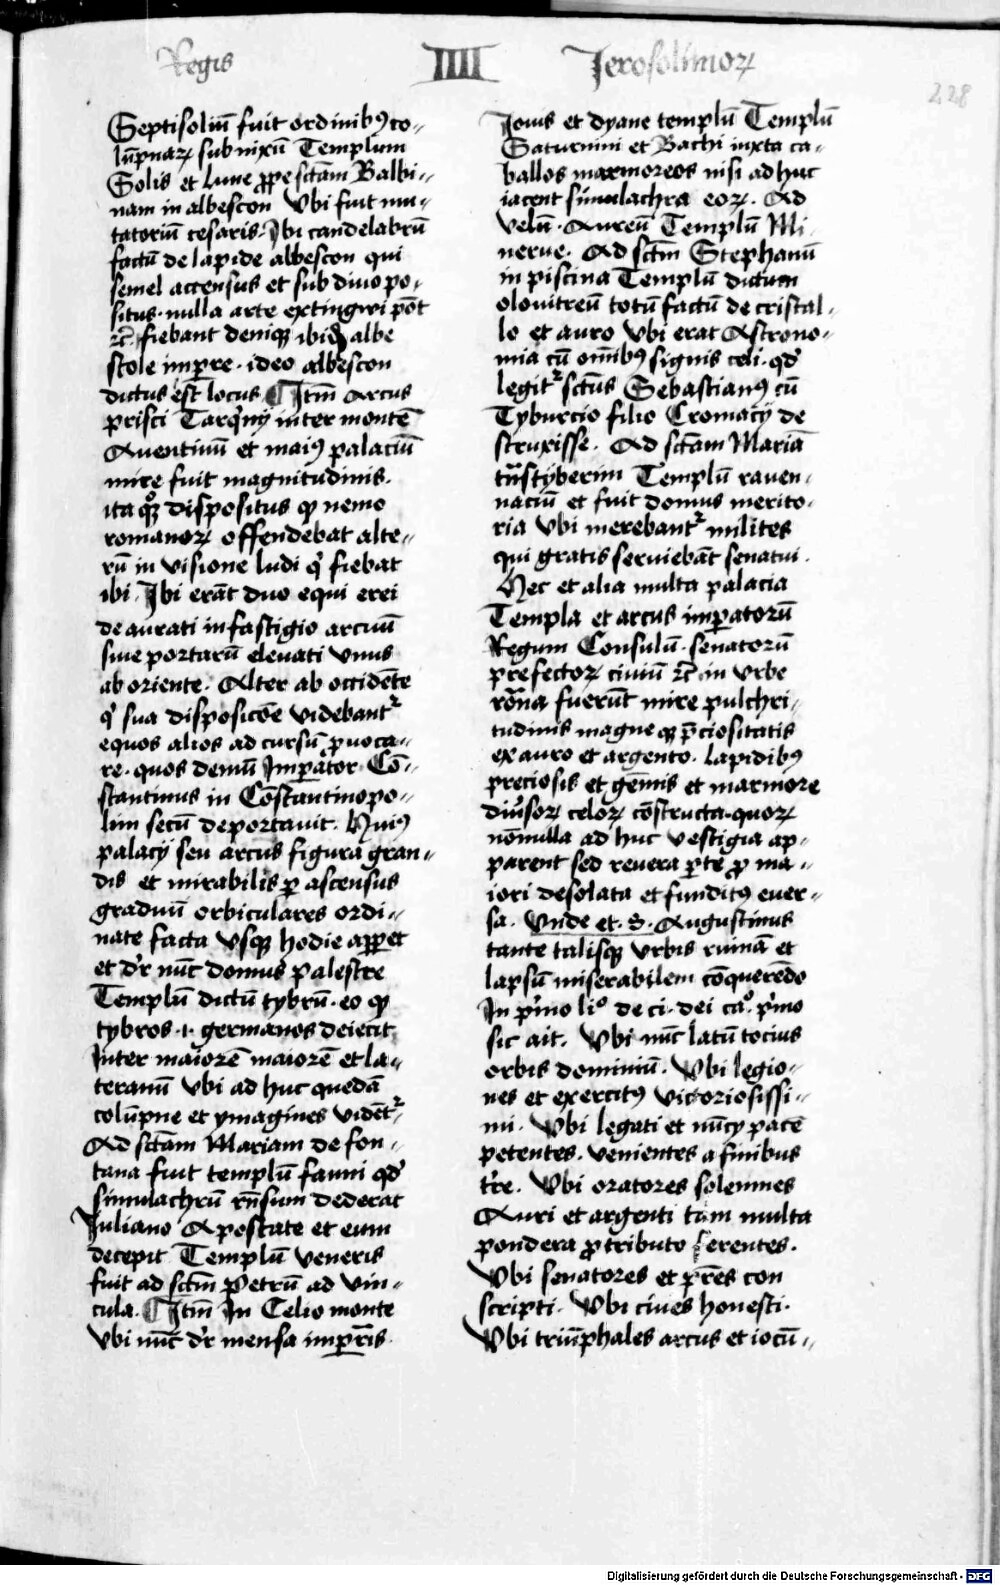 Regis IIII Jerosolimoꝝ
228
Septisoliū fuit ordinibꝰ co-
lūpnaꝝ subnixū Templum
Solis et lune ꝓpe sctām Balbi-
nam in albescon Vbi fuit mu-
tatoriū cesaris. Ibi candelabrū
factū de lapide albescon qui
semel accensus et sub diuo po-
situs. nulla arte extingwi pōt
⁊c̄ fiebant deniqꝫ ibidē albe
stole imꝑre. ideo albescon
dictus est locus ¶ Itm̄ Arcus
prisci Tarqͥnij inter montē
Auentinū et maiꝰ palaciū
mire fuit magnitudinis.
ita qͦqꝫ dispositus ꝙ nemo
romanoꝝ offendebat alte-
rū in visione ludi qͥ fiebat
ibi. Ibi erāt duo equi erei
de aurati in fastigio arcuū
siue portarū eleuati vnus
ab oriente. Alter ab occidēte
qͥ sua disposicōe videbantᷣ
equos alios ad cursū ꝓuoca-
re. quos demū Imperator Cō-
stantinus in Cōstantinopo-
lim secū deportauit. Huiꝰ
palacij seu arcus figura gran-
dis et mirabilis ꝑ ascensus
graduū orbiculares ordi-
nate facta vsqꝫ hodie apꝑet
et dr̄ nūc domus palestre
Templū dictū tybrū. eo ꝙ
tybros .i. germanos deiecit
Inter maiorē maiorē et la-
teranū vbi ad huc quedā
colūpne et ymagines vidētᷣ
Ad sctām Mariam de fon-
tana fuit templū fauni qd̓
simulachrū rn̄sum dederat
Iuliano Apostate et eum
decepit Templū veneris
fuit ad sctm̄ Petrū ad vin-
cula. ¶ Itm̄ In Celio monte
vbi nūc dr̄ mensa impr̄is
Iouis et dyane templū Templū
Saturnini et Bachi iuxta ca-
ballos marmoreos nisi ad huc
iacent simulachra eoꝝ. Ad
velū. Aureū Templū Mi-
nerue. Ad sctm̄ Stephanū
in piscina Templū dictum
olouitreū totū factū de cristal-
lo et auro vbi erat Astrono-
mia cū om̄ibꝰ signis celi. qd̓
legitᷣ sctūs Sebastianꝰ cū
Tyburcio filio Cromacij de
struxisse. Ad sctām Mariā
trn̄styberim Templū rauen-
naciū et fuit domus merito-
ria vbi merebantᷣ milites
qui gratis seruiebāt senatui.
Hec et alia multa palacia
Templa et arcus imꝑatorū
Regum Consulū. senatorū
prefectoꝝ ciuiū ⁊c̄ in vrbe
roāna fuerūt mire pulchri-
tudinis magne qꝫ p̄ciositatis
ex auro et argento. lapidibꝰ
preciosis et gēmis et marmore
diu̓soꝝ coloꝝ cōstructa. quoꝝ
nōnulla ad huc vestigia ap-
parent sed reuera ꝑte ꝓ ma-
iori desolata et funditꝰ euer-
sa. Vnde et .S. Augustinus
tante talisqꝫ vrbis ruinā et
lapsū miserabilem cōquerēdo
In pͥmo liͦ de ci. dei caͦ. pͥmo
sic ait. Vbi nūc latū tocius
orbis dominiū. Vbi legio-
nes et exercitꝰ victoriosissi-
mi. Vbi legati et nūcij pacē
petentes. venientes a finibus
tr̄e. Vbi oratores solennes
Auri et argenti tam multa
pondera ꝓ tributo ferentes.
Vbi senatores et pr̄es con
scripti. Vbi ciues honesti.
Vbi triūphales arcus et iocū-
Digitalisierung gefördert durch die Deutsche Forschungsgemeinschaft - DFG